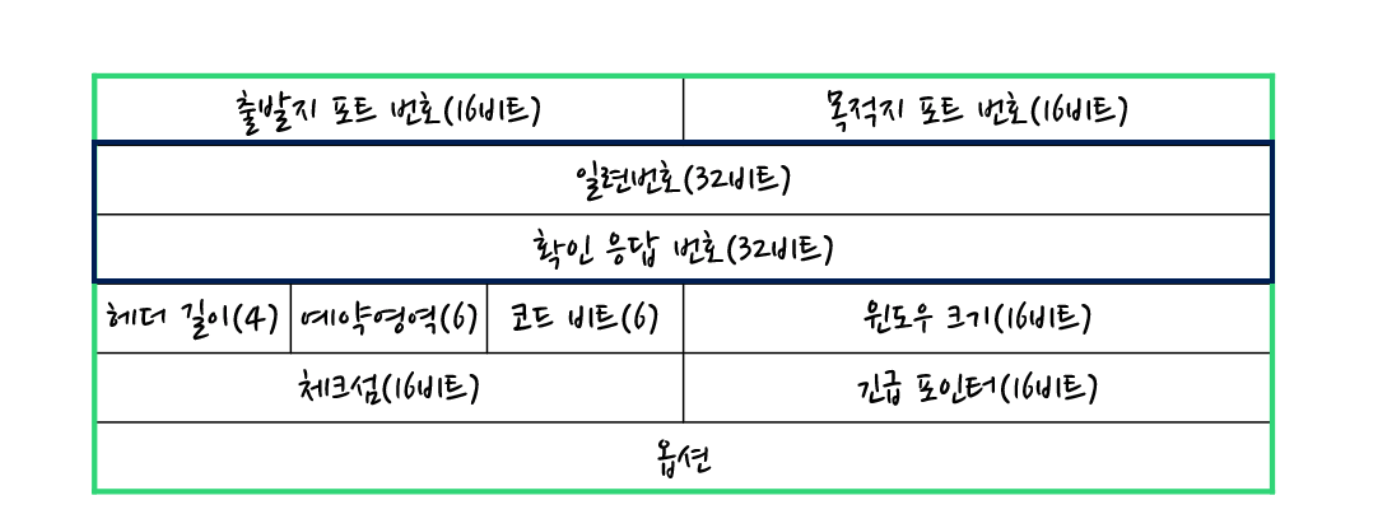 출발지 포트 번호(16비트) 목적지 포트 번호(16비트)
일련번호(32비트)
확인 응답 번호(32비트)
헤더 길이(4) 예약영역(6) 코드 비트(6) 윈도우 크기(16비트)
체크섬(16비트) 긴급 포인터(16비트)
옵션